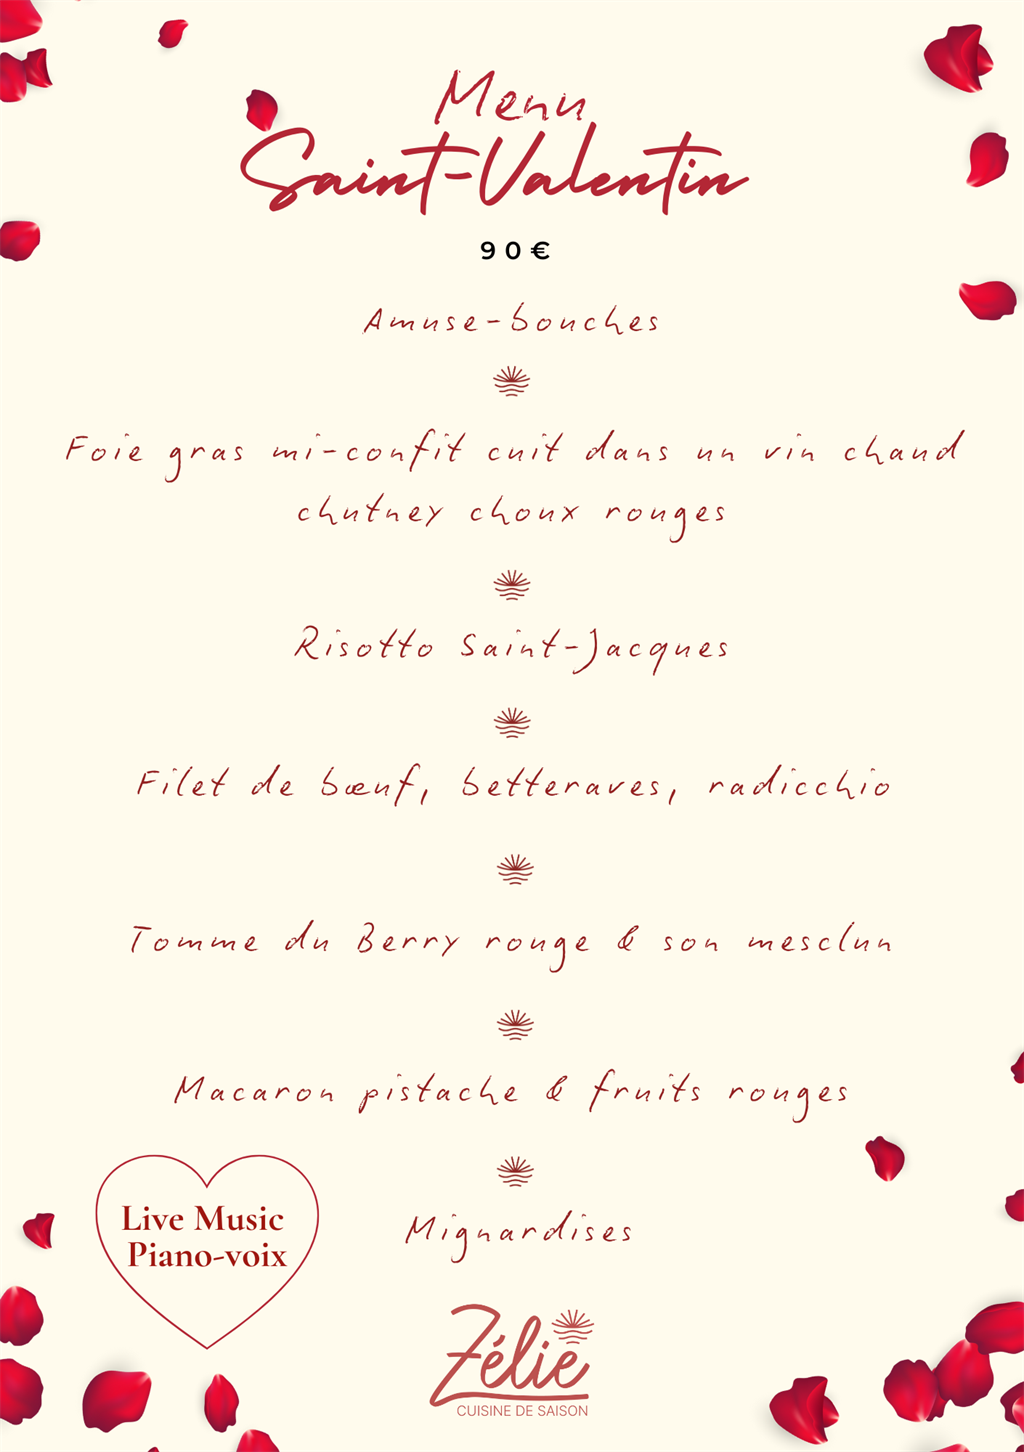 Menu
Saint-Valentin
90€
Amuse-bouches
Foie gras mi-confit cuit dans un vin chaud
chutney choux rouges
Risotto Saint-Jacques
Filet de bœuf, betteraves, radicchio
Tomme du Berry rouge & son mesclun
Macaron pistache & fruits rouges
Mignardises
Live Music
Piano-voix
Zélie
CUISINE DE SAISON